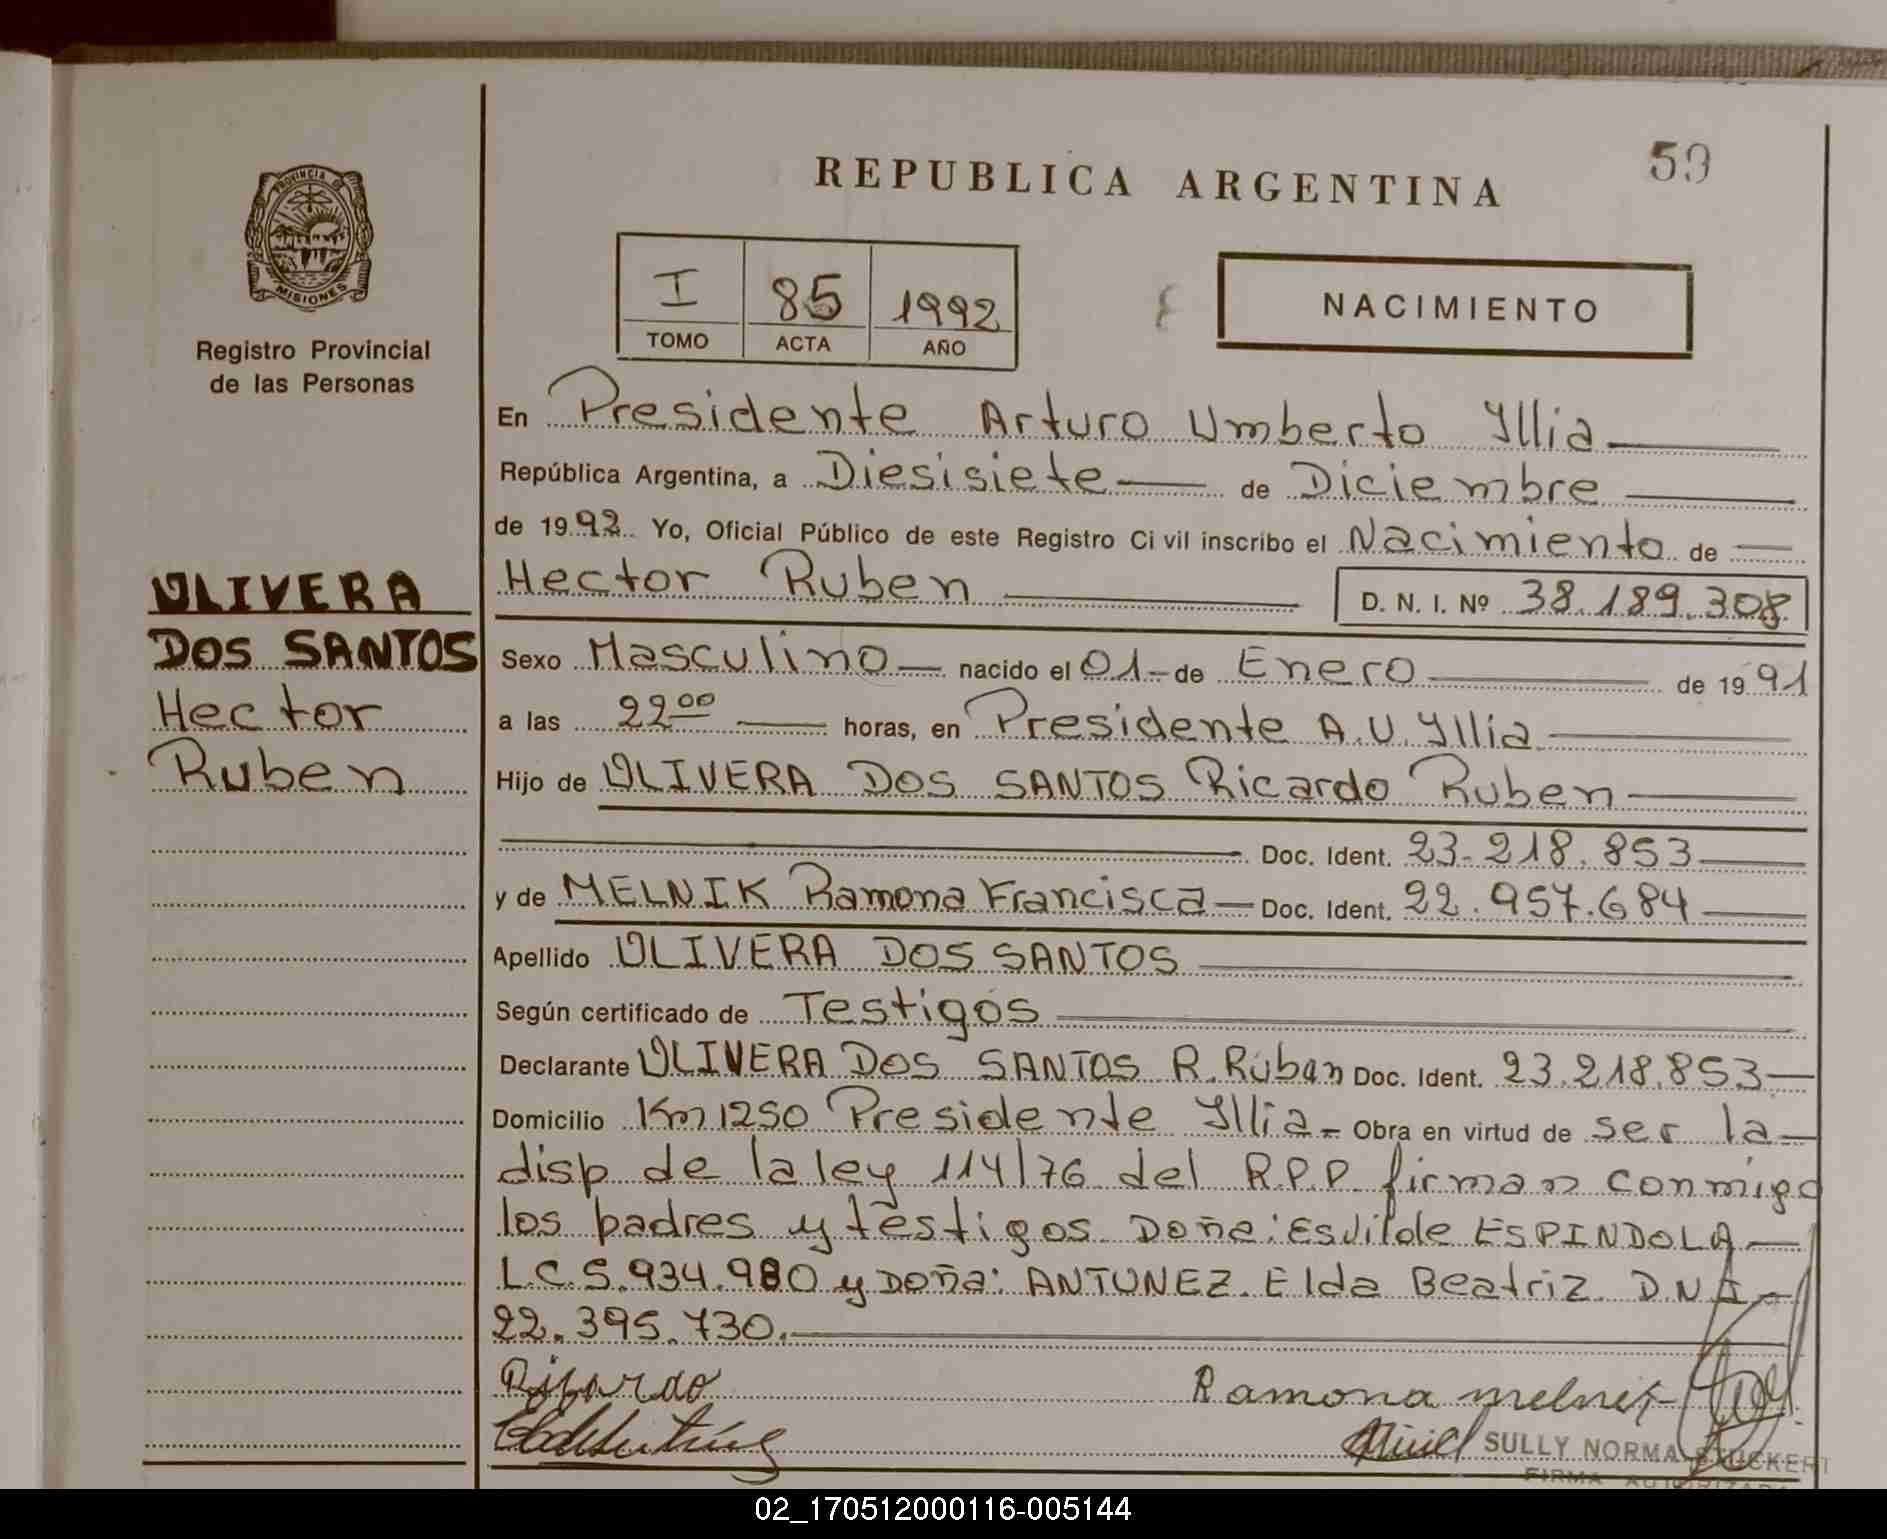 59
REPUBLICA ARGENTINA
PROVINCIA DE
MISIONES
Registro Provincial
de las Personas
I 85 1992
TOMO ACTA AÑO
NACIMIENTO
OLIVERA
DOS SANTOS
Hector
Ruben
En Presidente Arturo Umberto Yllia
República Argentina, a Diesisiete de Diciembre
de 1992 Yo, Oficial Público de este Registro Civil inscribo el Nacimiento de
Hector Ruben D. N. I. Nº 38.189.308
Sexo Masculino nacido el 01 de Enero de 1991
a las 22 00 horas, en Presidente A.U. Yllia
Hijo de OLIVERA DOS SANTOS Ricardo Ruben
Doc. Ident. 23.218.853
y de MELNIK Ramona Francisca Doc. Ident. 22.957.684
Apellido OLIVERA DOS SANTOS
Según certificado de Testigos
Declarante OLIVERA DOS SANTOS R. Ruban Doc. Ident. 23.218.853
Domicilio Km 1250 Presidente Yllia Obra en virtud de ser la
disp de la ley 114/76 del R.P.P. firman conmigo
los padres y testigos Doña: Esvilde ESPINDOLA
L.C. 5.934.980 y Doña: ANTUNEZ. Elda Beatriz D.N.I
22.395.730.
Ricardo Ramona melnik
SULLY NORMA STUCKERT
FIRMA AUTORIZADA
02_170512000116-005144